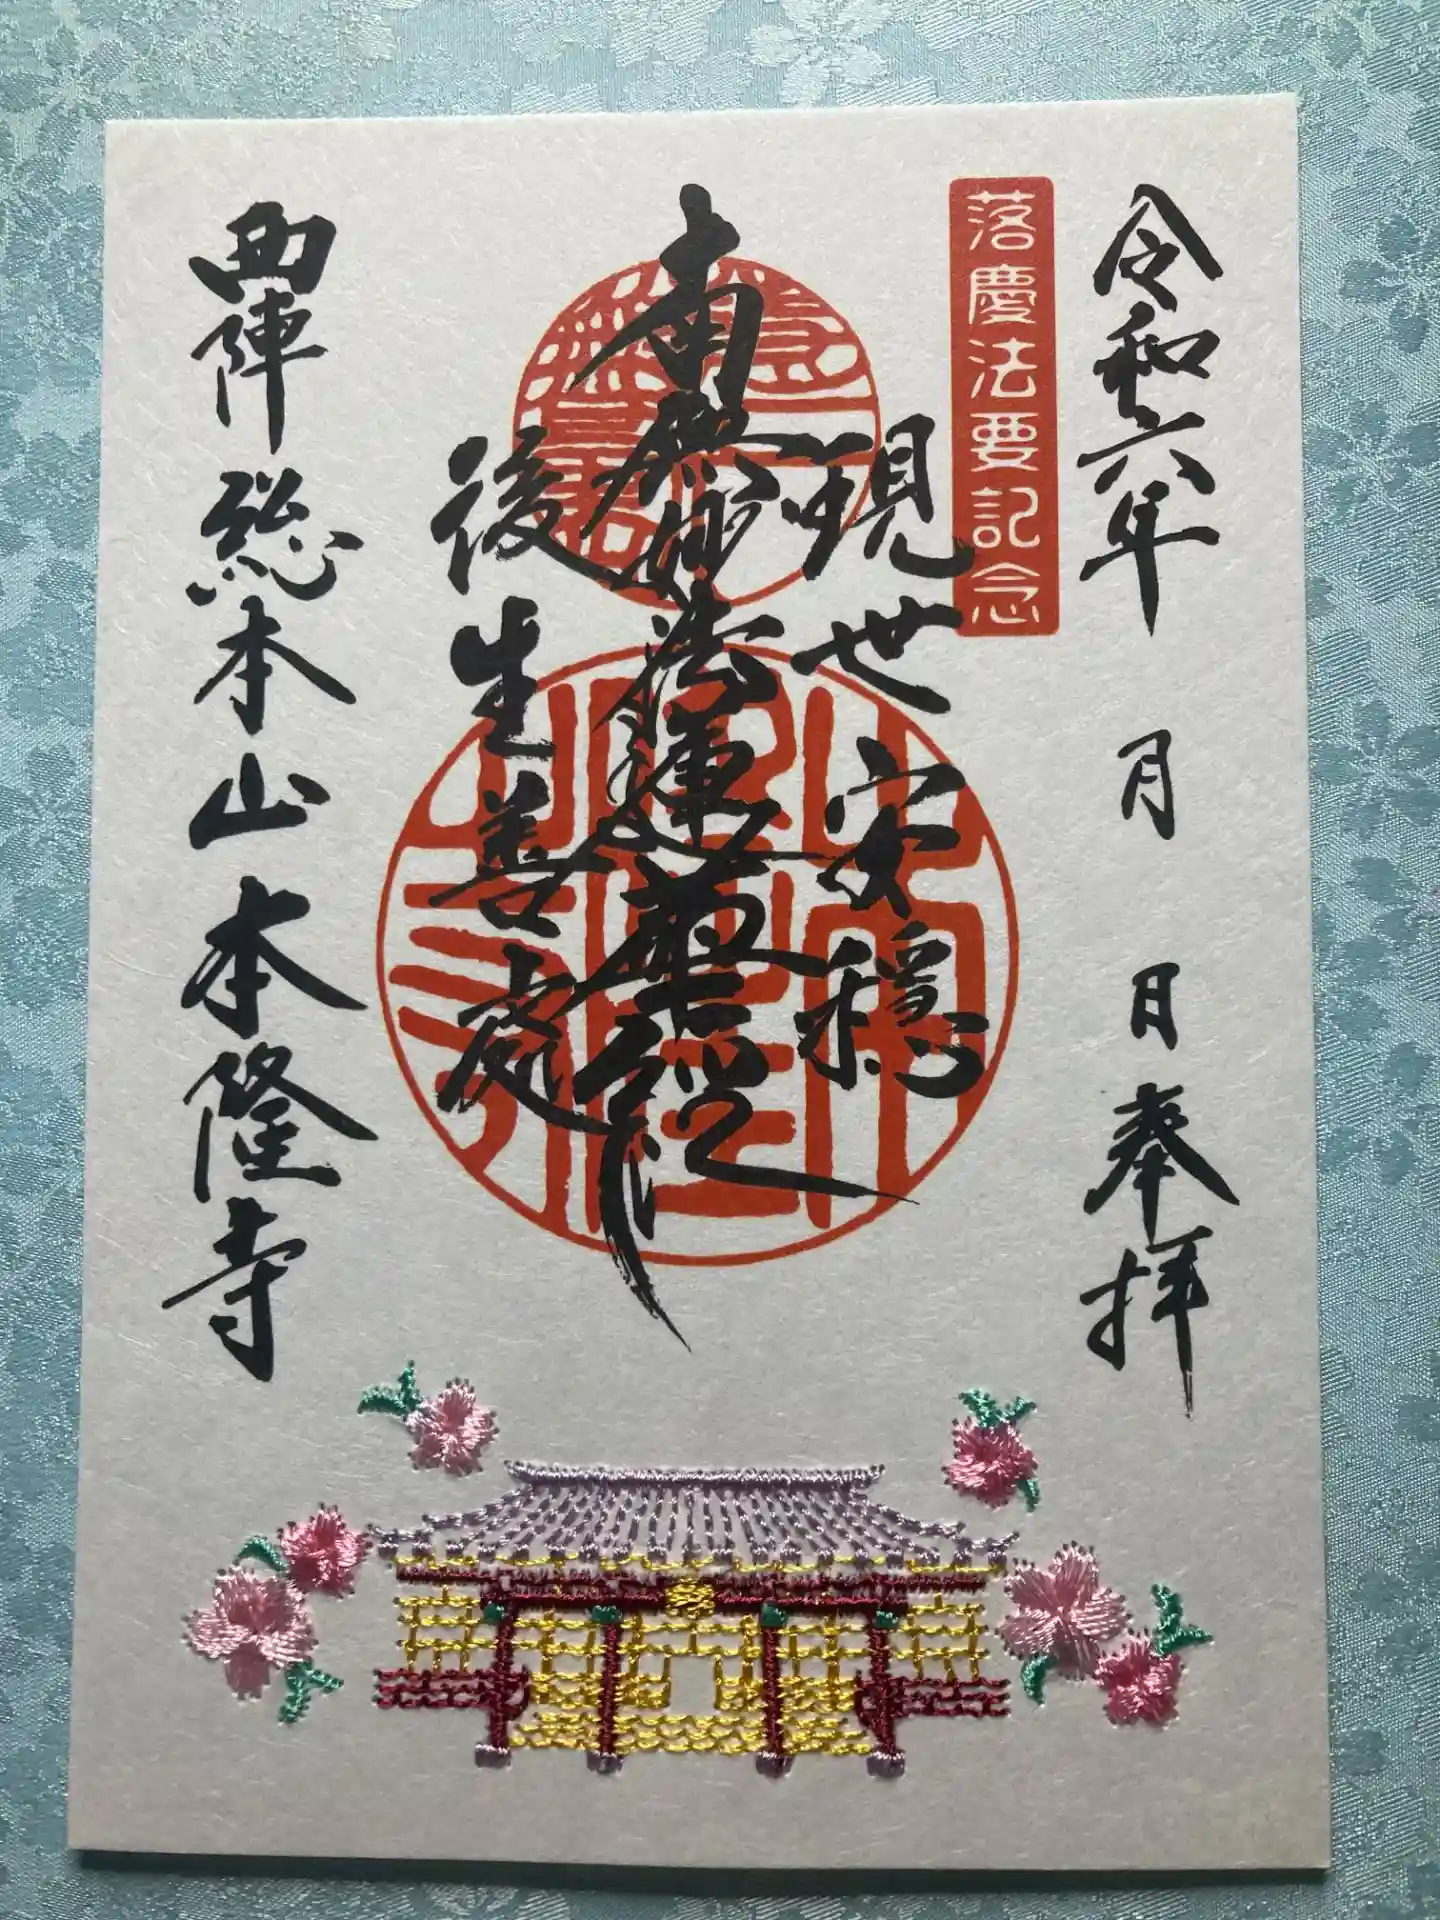 令和六年 月 日 奉拝
落慶法要記念
現世安穏
南無妙法蓮華経
後生善處
西陣 総本山 本隆寺